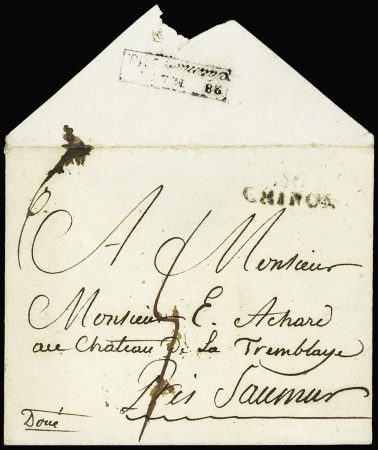 CHINON
A Monsieur
Monsieur E. Achard
au Château De La Tremblaye
Près Saumur
Doué